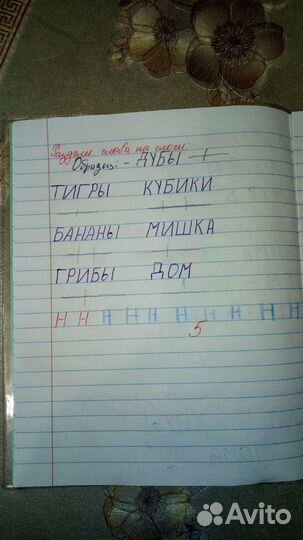 Раздели слова на слоги:
Образец: - ДУБЫ
ТИГРЫ КУБИКИ
БАНАНЫ МИШКА
ГРИБЫ ДОМ
Н Н Н Н Н Н Н Н Н Н
5
Avito